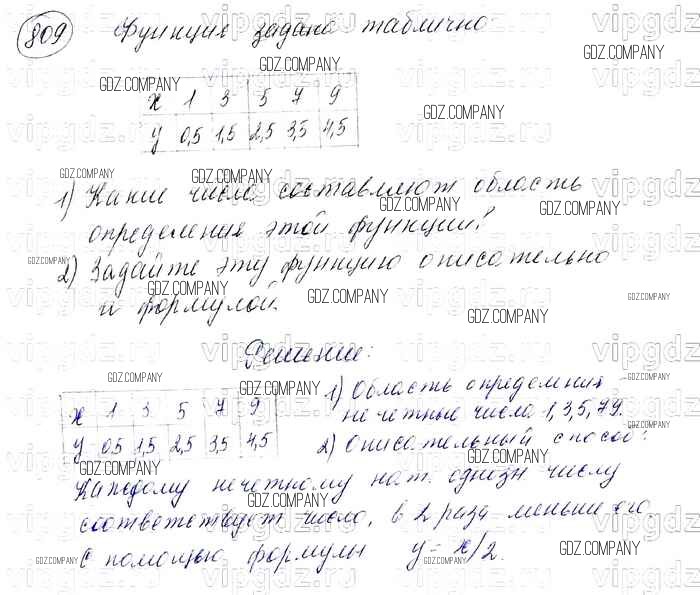 809 Функция задана таблично
x 1 3 5 7 9
y 0,5 1,5 2,5 3,5 4,5
1) Какие числа составляют область
определения этой функции?
2) Задайте эту функцию описательно
и формулой.
Решение:
x 1 3 5 7 9
y 0,5 1,5 2,5 3,5 4,5
1) Область определения
нечетные числа 1,3,5,7,9.
2) Описательный способ:
Каждому нечетному нат. однозн числу
соответствует число, в 2 раза меньше его.
С помощью формулы y = x/2.
GDZ.COMPANY
vipgdz.ru